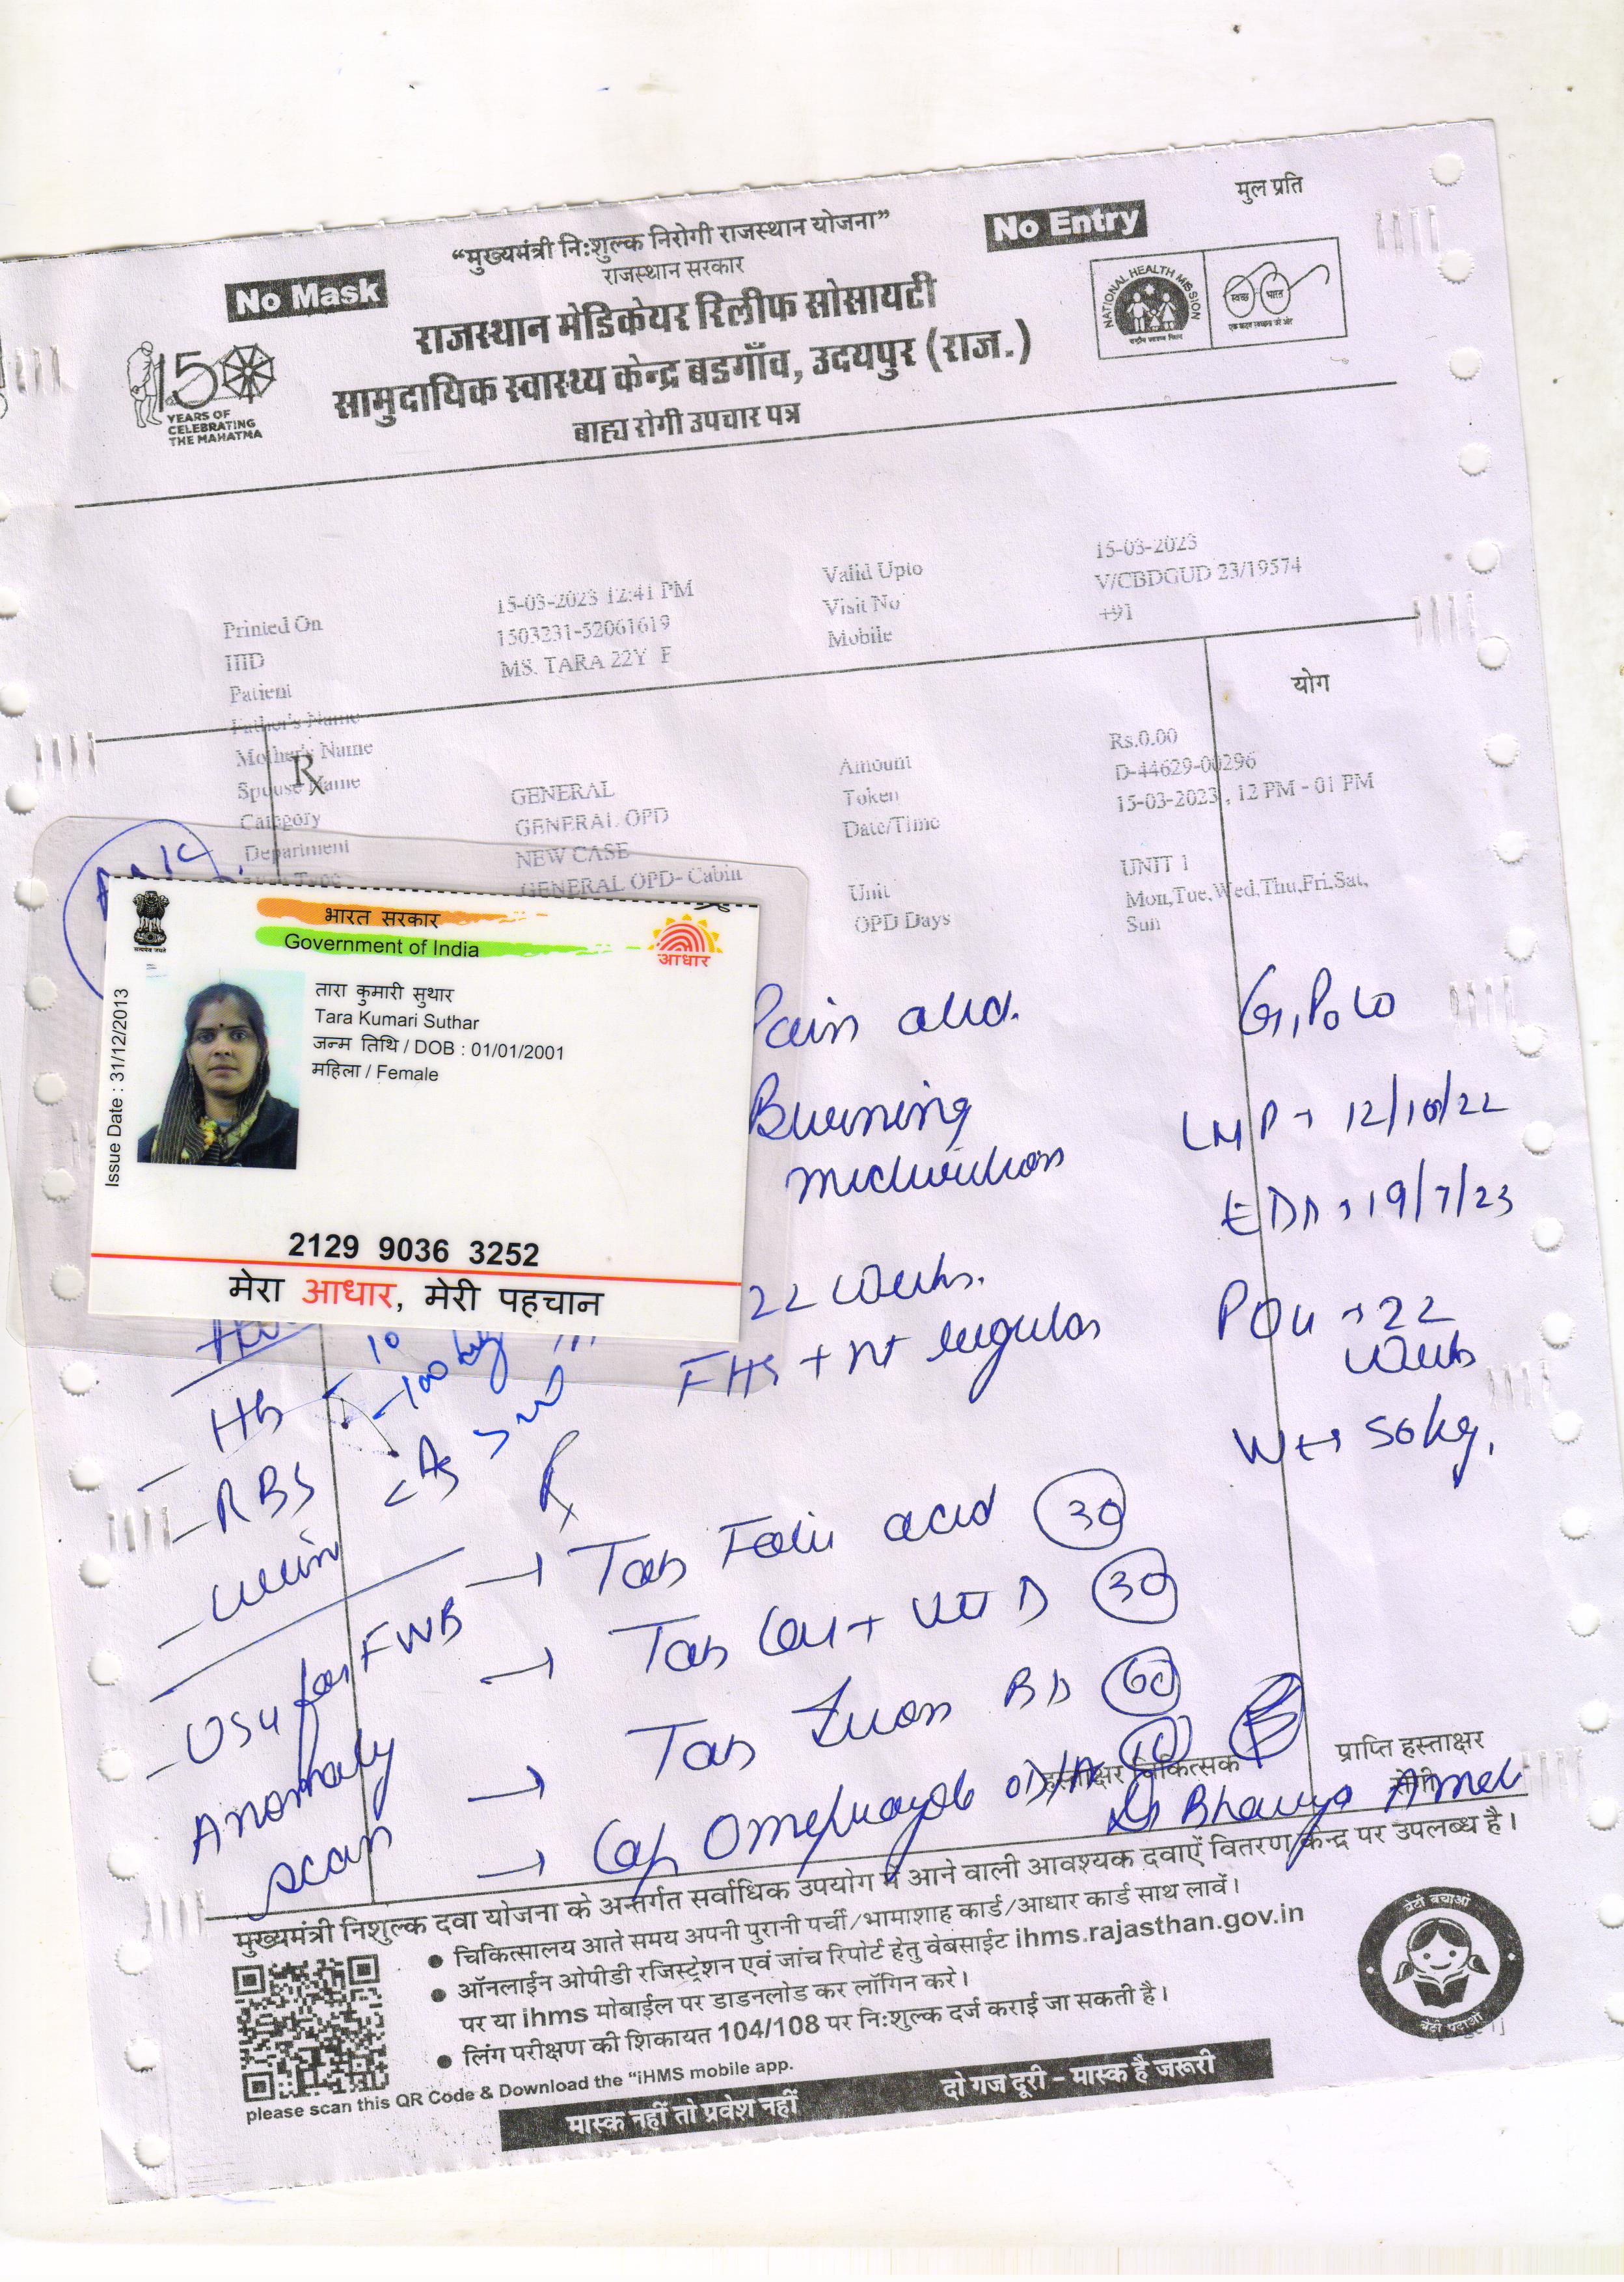 मुल प्रति
"मुख्यमंत्री नि:शुल्क निरोगी राजस्थान योजना"
No Entry
राजस्थान सरकार
No Mask
राजस्थान मेडिकेयर रिलीफ सोसायटी
सामुदायिक स्वास्थ्य केन्द्र बडगाँव, उदयपुर (राज.)
बाह्य रोगी उपचार पत्र
150
YEARS OF
CELEBRATING
THE MAHATMA
NATIONAL HEALTH MISSION
स्वच्छ भारत
एक कदम स्वच्छता की ओर
Printed On 15-03-2023 12:41 PM Valid Upto 15-03-2023
HID 1503231-52061619 Visit No V/CBDGUD 23/19574
Patient MS. TARA 22Y F Mobile +91
Father's Name
योग
Mother's Name
Rx
Spouse Name Amount Rs.0.00
Category GENERAL Token D-44629-00296
Department GENERAL OPD Date/Time 15-03-2023 , 12 PM - 01 PM
NEW CASE
GENERAL OPD- Cabin Unit UNIT 1
OPD Days Mon,Tue,Wed,Thu,Fri,Sat,
Sun
भारत सरकार
Government of India
आधार
Issue Date : 31/12/2013
तारा कुमारी सुथार
Tara Kumari Suthar
जन्म तिथि / DOB : 01/01/2001
महिला / Female
2129 9036 3252
मेरा आधार, मेरी पहचान
Pain abd.
Burning
micturition
22 weeks.
FHS + nt regular
G1P0L0
LMP → 12/10/22
EDD → 19/7/23
POG → 22
weeks
Wt → 50kg.
- Hb 10
- RBS - 100
- Urine
- USG for FWB
Anomaly
scan
Rx
→ Tab Folic acid 30
→ Tab Cal + Vit D 30
→ Tab Iron BD 60
→ Cap Omeprazole OD
Dr Bhavya
हस्ताक्षर चिकित्सक
प्राप्ति हस्ताक्षर
रोगी
मुख्यमंत्री निशुल्क दवा योजना के अन्तर्गत सर्वाधिक उपयोग में आने वाली आवश्यक दवाऐं वितरण केन्द्र पर उपलब्ध है।
● चिकित्सालय आते समय अपनी पुरानी पर्ची/भामाशाह कार्ड/आधार कार्ड साथ लावें।
● ऑनलाईन ओपीडी रजिस्ट्रेशन एवं जांच रिपोर्ट हेतु वेबसाईट ihms.rajasthan.gov.in
पर या ihms मोबाईल पर डाडनलोड कर लॉगिन करे।
● लिंग परीक्षण की शिकायत 104/108 पर नि:शुल्क दर्ज कराई जा सकती है।
please scan this QR Code & Download the "iHMS mobile app.
मास्क नहीं तो प्रवेश नहीं
दो गज दूरी - मास्क है जरूरी
बेटी बचाओ
बेटी पढाओ